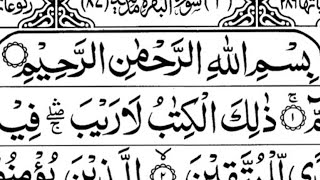 سُوْرَةُ الْبَقَرَةِ مَدَنِيَّةٌ
بِسْمِ اللهِ الرَّحْمٰنِ الرَّحِيْمِ
ذٰلِكَ الْكِتٰبُ لَا رَيْبَ ۛ فِيْ
لِّلْمُتَّقِيْنَ ٢ الَّذِيْنَ يُؤْمِنُو